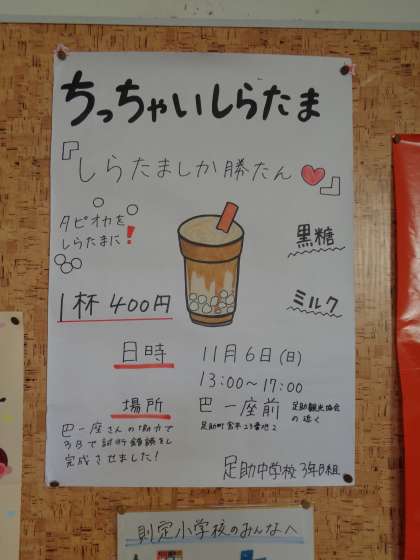 ちっちゃいしらたま
『しらたましか勝たん♥』
タピオカを
しらたまに!
黒糖
1杯 400円
ミルク
日時 11月6日(日)
13:00~17:00
場所 巴一座前 足助観光協会
の近く
足助町宮平23番地2
巴一座さんの協力で
3Bで試行錯誤をし
完成させました!
足助中学校 3年B組
則定小学校のみんなへ